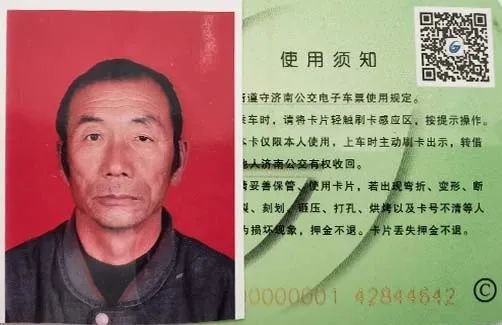 使用须知
遵守济南公交电子车票使用规定。
车时，请将卡片轻触刷卡感应区，按提示操作。
卡仅限本人使用，上车时主动刷卡出示，转借
他人济南公交有权收回。
妥善保管、使用卡片，若出现弯折、变形、断
裂、刻划、砸压、打孔、烘烤以及卡号不清等人
为损坏现象，押金不退。卡片丢失押金不退。
00000001 42844642 ©